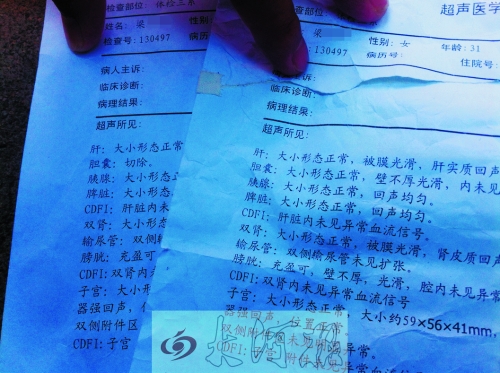 检查部位: 体检三系
姓名: 梁
检查号: 130497
病人主诉:
临床诊断:
病理结果:
超声所见:
肝: 大小形态正常
胆囊: 切除。
胰腺: 大小形态正
脾脏: 大小形态
CDFI: 肝脏内未
双肾: 大小形态
输尿管: 双侧输
膀胱: 充盈可,
CDFI: 双肾内
子宫: 大小形
器强回声,
双侧附件区
CDFI: 子宫
超声医学
检查部位:
梁
性别: 女
年龄: 31
130497
病历号:
住院号:
病人主诉:
临床诊断:
病理结果:
超声所见:
肝: 大小形态正常, 被膜光滑, 肝实质回声
胆囊: 大小形态正常, 壁不厚光滑, 内未见
胰腺: 大小形态正常, 回声均匀。
脾脏: 大小形态正常, 回声均匀。
CDFI: 肝脏内未见异常血流信号。
双肾: 大小形态正常, 被膜光滑, 肾皮质回声
输尿管: 双侧输尿管未见扩张。
膀胱: 充盈可, 壁不厚, 光滑, 腔内未见异常
CDFI: 双肾内未见异常血流信号
子宫: 大小形态正常, 大小约59×56×41mm,
器强回声, 位置正常
双侧附件区未见明显异常。
CDFI: 子宫、附件